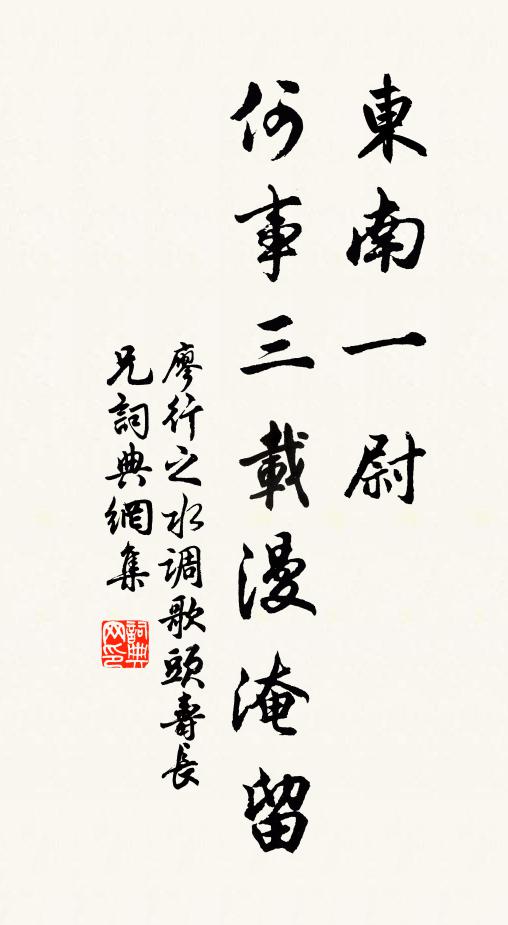 東南一尉
何事三載漫淹留
廖行之水调歌頭壽長
兄詞典網集
詞典
网印